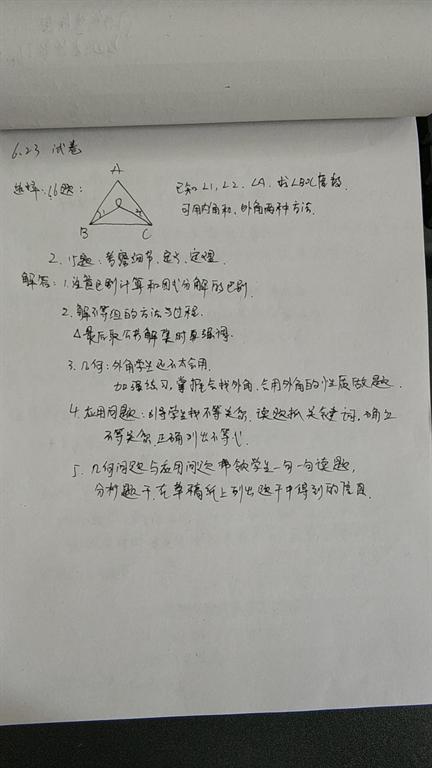 6.23 试卷
选择:6题:
A
O
1
2
B
C
已知∠1,∠2、∠A,求∠BOC度数.
可用内角和、外角两种方法.
2. 15题:考察细节、定义、定理.
解答:1.注意区别计算和因式分解的区别.
2.解不等组的方法与过程.
△最后取公共解集时要强调.
3.几何:外角学生还不太会用.
加强练习,掌握去找外角,会用外角的性质做题.
4.应用问题:引导学生找不等关系,读题抓关键词,确立
不等关系,正确列出不等式.
5.几何问题与应用问题带领学生一句一句读题,
分析题干,在草稿纸上列出题干中得到的信息.